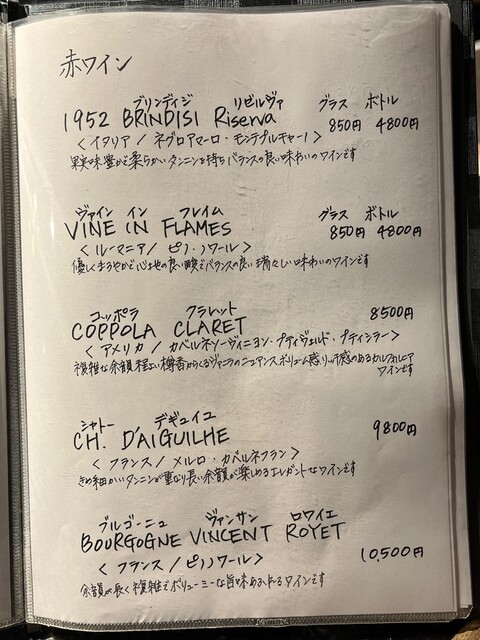 赤ワイン
ブリンディジ リゼルヴァ グラス ボトル
1952 BRINDISI Riserva 850円 4800円
<イタリア / ネグロアマーロ・モンテプルチャーノ>
果実味豊かで柔らかいタンニンを持ちバランスの良い味わいのワインです
ヴァイン イン フレイム グラス ボトル
VINE IN FLAMES 850円 4800円
<ルーマニア / ピノ・ノワール>
優しくまろやかで心地の良い酸でバランスの良い瑞々しい味わいのワインです
コッポラ クラレット
COPPOLA CLARET 8500円
<アメリカ / カベルネソーヴィニヨン・プティヴェルド・プティシラー>
複雑な余韻程よい樽香からくるヴァニラのニュアンスボリューム感のあるカルフォルニア
ワインです
シャトー デギュイユ
CH. D'AIGUILHE 9800円
<フランス / メルロ・カベルネフラン>
きめ細かいタンニンが重なり長い余韻が楽しめるエレガントなワインです
ブルゴーニュ ヴァンサン ロワイエ
BOURGOGNE VINCENT ROYET 10,500円
<フランス / ピノノワール>
余韻が長く複雑でボリューミーな旨味あふれるワインです